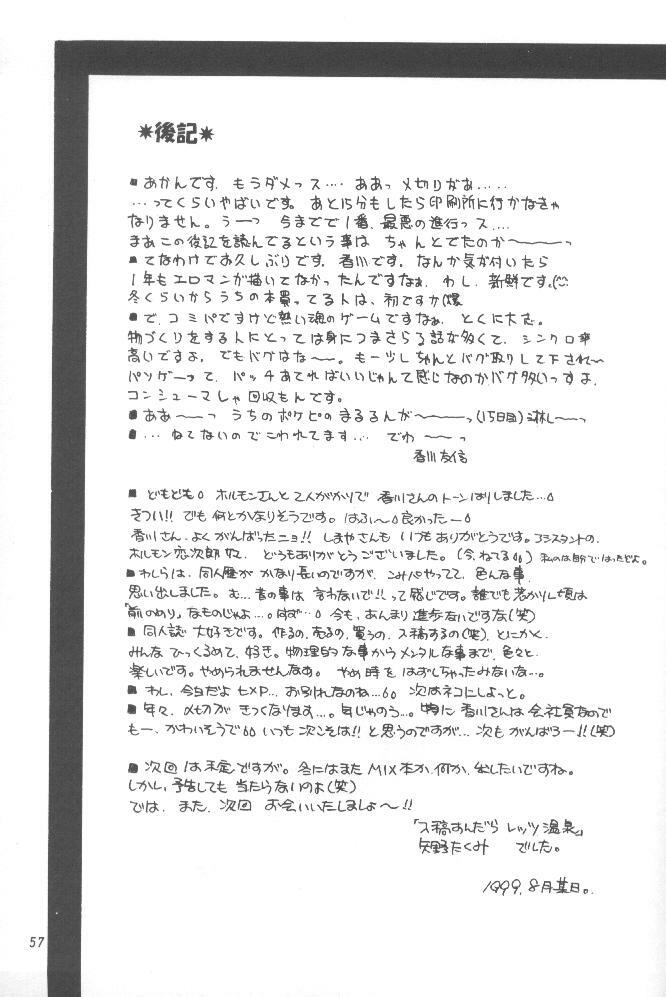 ＊後記＊
■あかんです．もうダメっス‥‥ ああっ〆切りがぁ‥‥‥
‥‥ってくらいやばいです。 あと15分もしたら印刷所に行かなきゃ
なりません。うーっ 今までで1番、最悪の進行っス‥‥
まあこの後記を読んでるという事は ちゃんとでたのか〜〜〜っ
■てなわけでお久しぶりです．香川です。なんか気が付いたら
1年もエロマンガ描いてなかったんですなぁ．わし．新鮮です。
冬くらいからうちの本買ってる人は、初ですか(爆
■で．コミパですけど熱い魂のゲームですなぁ．とくに大志。
物づくりをする人にとっては身につまされる話が多くて．シンクロ率
高いですよ．でもバグはな〜〜。もーツしちゃんとバグ取りして下され〜
パソゲーって．パッチあてればいいじゃんて感じなのかバグ多いっすよ．
コンシューマじゃ回収もんです。
■ああ〜〜っ うちのポケピのまるるんが〜〜〜っ(15日目)淋し〜っ
■‥‥ねてないのでこわれてます‥‥ でわ 〜〜っ
香川友信
■どもども。ホルモンさんと2人がかりで香川さんのトーンはりしました‥‥。
きつい!! でも何とかなりそうです。はふぅ〜。良かったー。
香川さん．よくがんばったニョ!! しまやさんも いつもありがとうです。アシスタントの．
ホルモン恋次郎 どうもありがとうございました。(今．ねてる。) 私のは自分ではったどよ。
■わしらは．同人歴が かなり長いのですが．こみパやってて．色んな事．
思い出しました。む‥‥昔の事は 言わないで!! って感じです。誰でも若かりし頃は
「前のめり」なものじゃよ‥‥。はず‥‥。今も．あんまり進歩ないですな(笑)
■同人誌 大好きです。作るの．売るの．買うの．入稿するの(笑)．とにかく．
みんな ひっくるめて．好き。物理的な事からメンタルな事まで．色々と
楽しいです。やめられませんなぁ。 やめ時を はずしちゃったみたいな‥‥。
■わし．今日だよ お別れなのね‥‥。 次はネコにしよっと。
■年々．〆切がきつくなります‥‥。年じゃのう‥‥。特に 香川さんは会社員なので
もー．かわいそうで。いつも次こそは!! と思うのですが‥‥次もがんばろー!!(笑)
■次回は未定ですが。冬にはまた MIX本か．何か．出したいですね。
しかし．予告しても 当たらないのよ(笑)
では．また．次回 お会いいたしましょ〜!!
「入稿すんだら レッツ温泉」
矢野たくみ でした。
1999．8月某日。
57